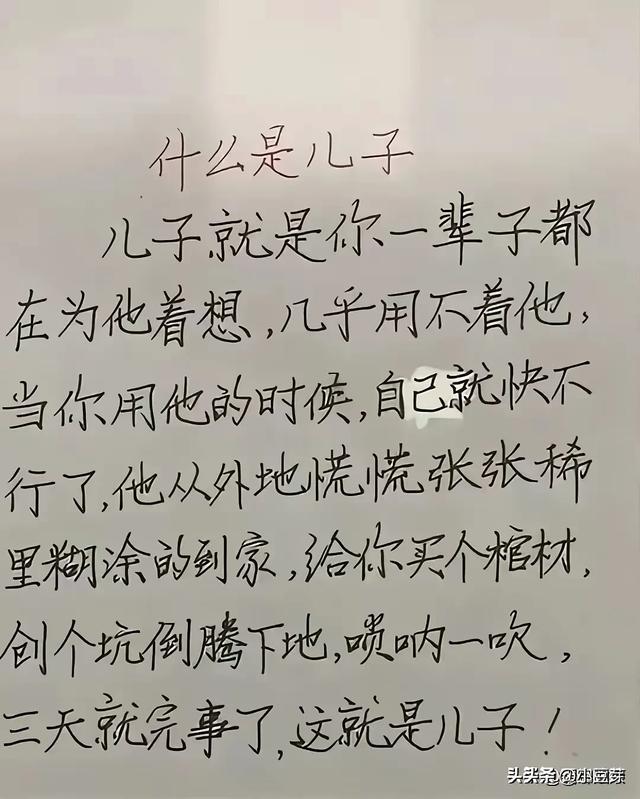 什么是儿子
儿子就是你一辈子都
在为他着想,几乎用不着他,
当你用他的时候,自己就快不
行了,他从外地慌慌张张稀
里糊涂的到家,给你买个棺材,
创个坑倒腾下地,唢呐一吹,
三天就完事了,这就是儿子!
头条